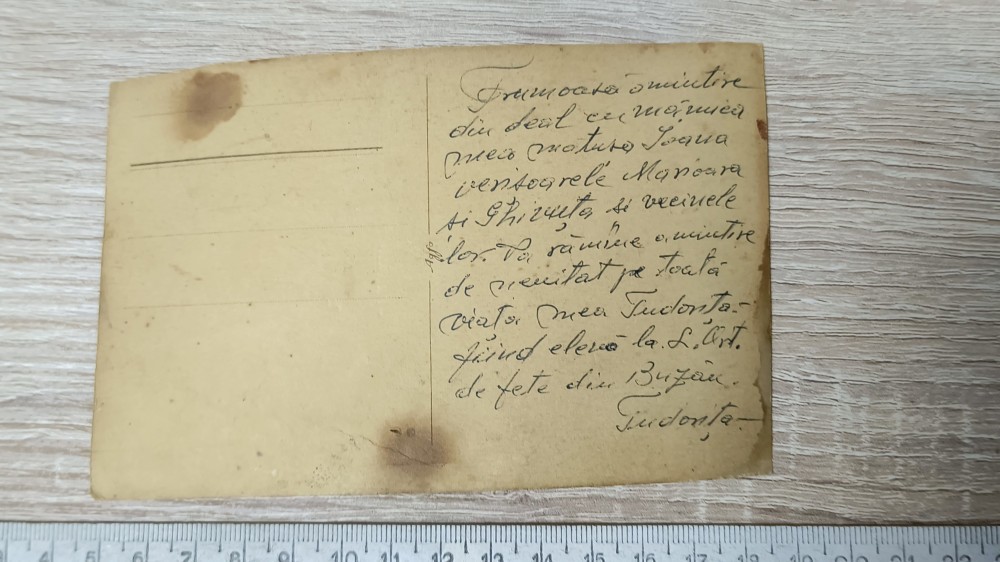 Frumoasă amintire
din deal cu mămica
mea matușa Ioana
verișoarele Marioara
si Ghinuța si vecinele
lor. Va rămîne amintire
de neuitat pe toată
viața mea Tudorița-
fiind elevă la L. Ort.
de fete din Buzău.
Tudorița-
Agfa
4 5 6 7 8 9 10 11 12 13 14 15 16 17 18 19 20 21 22